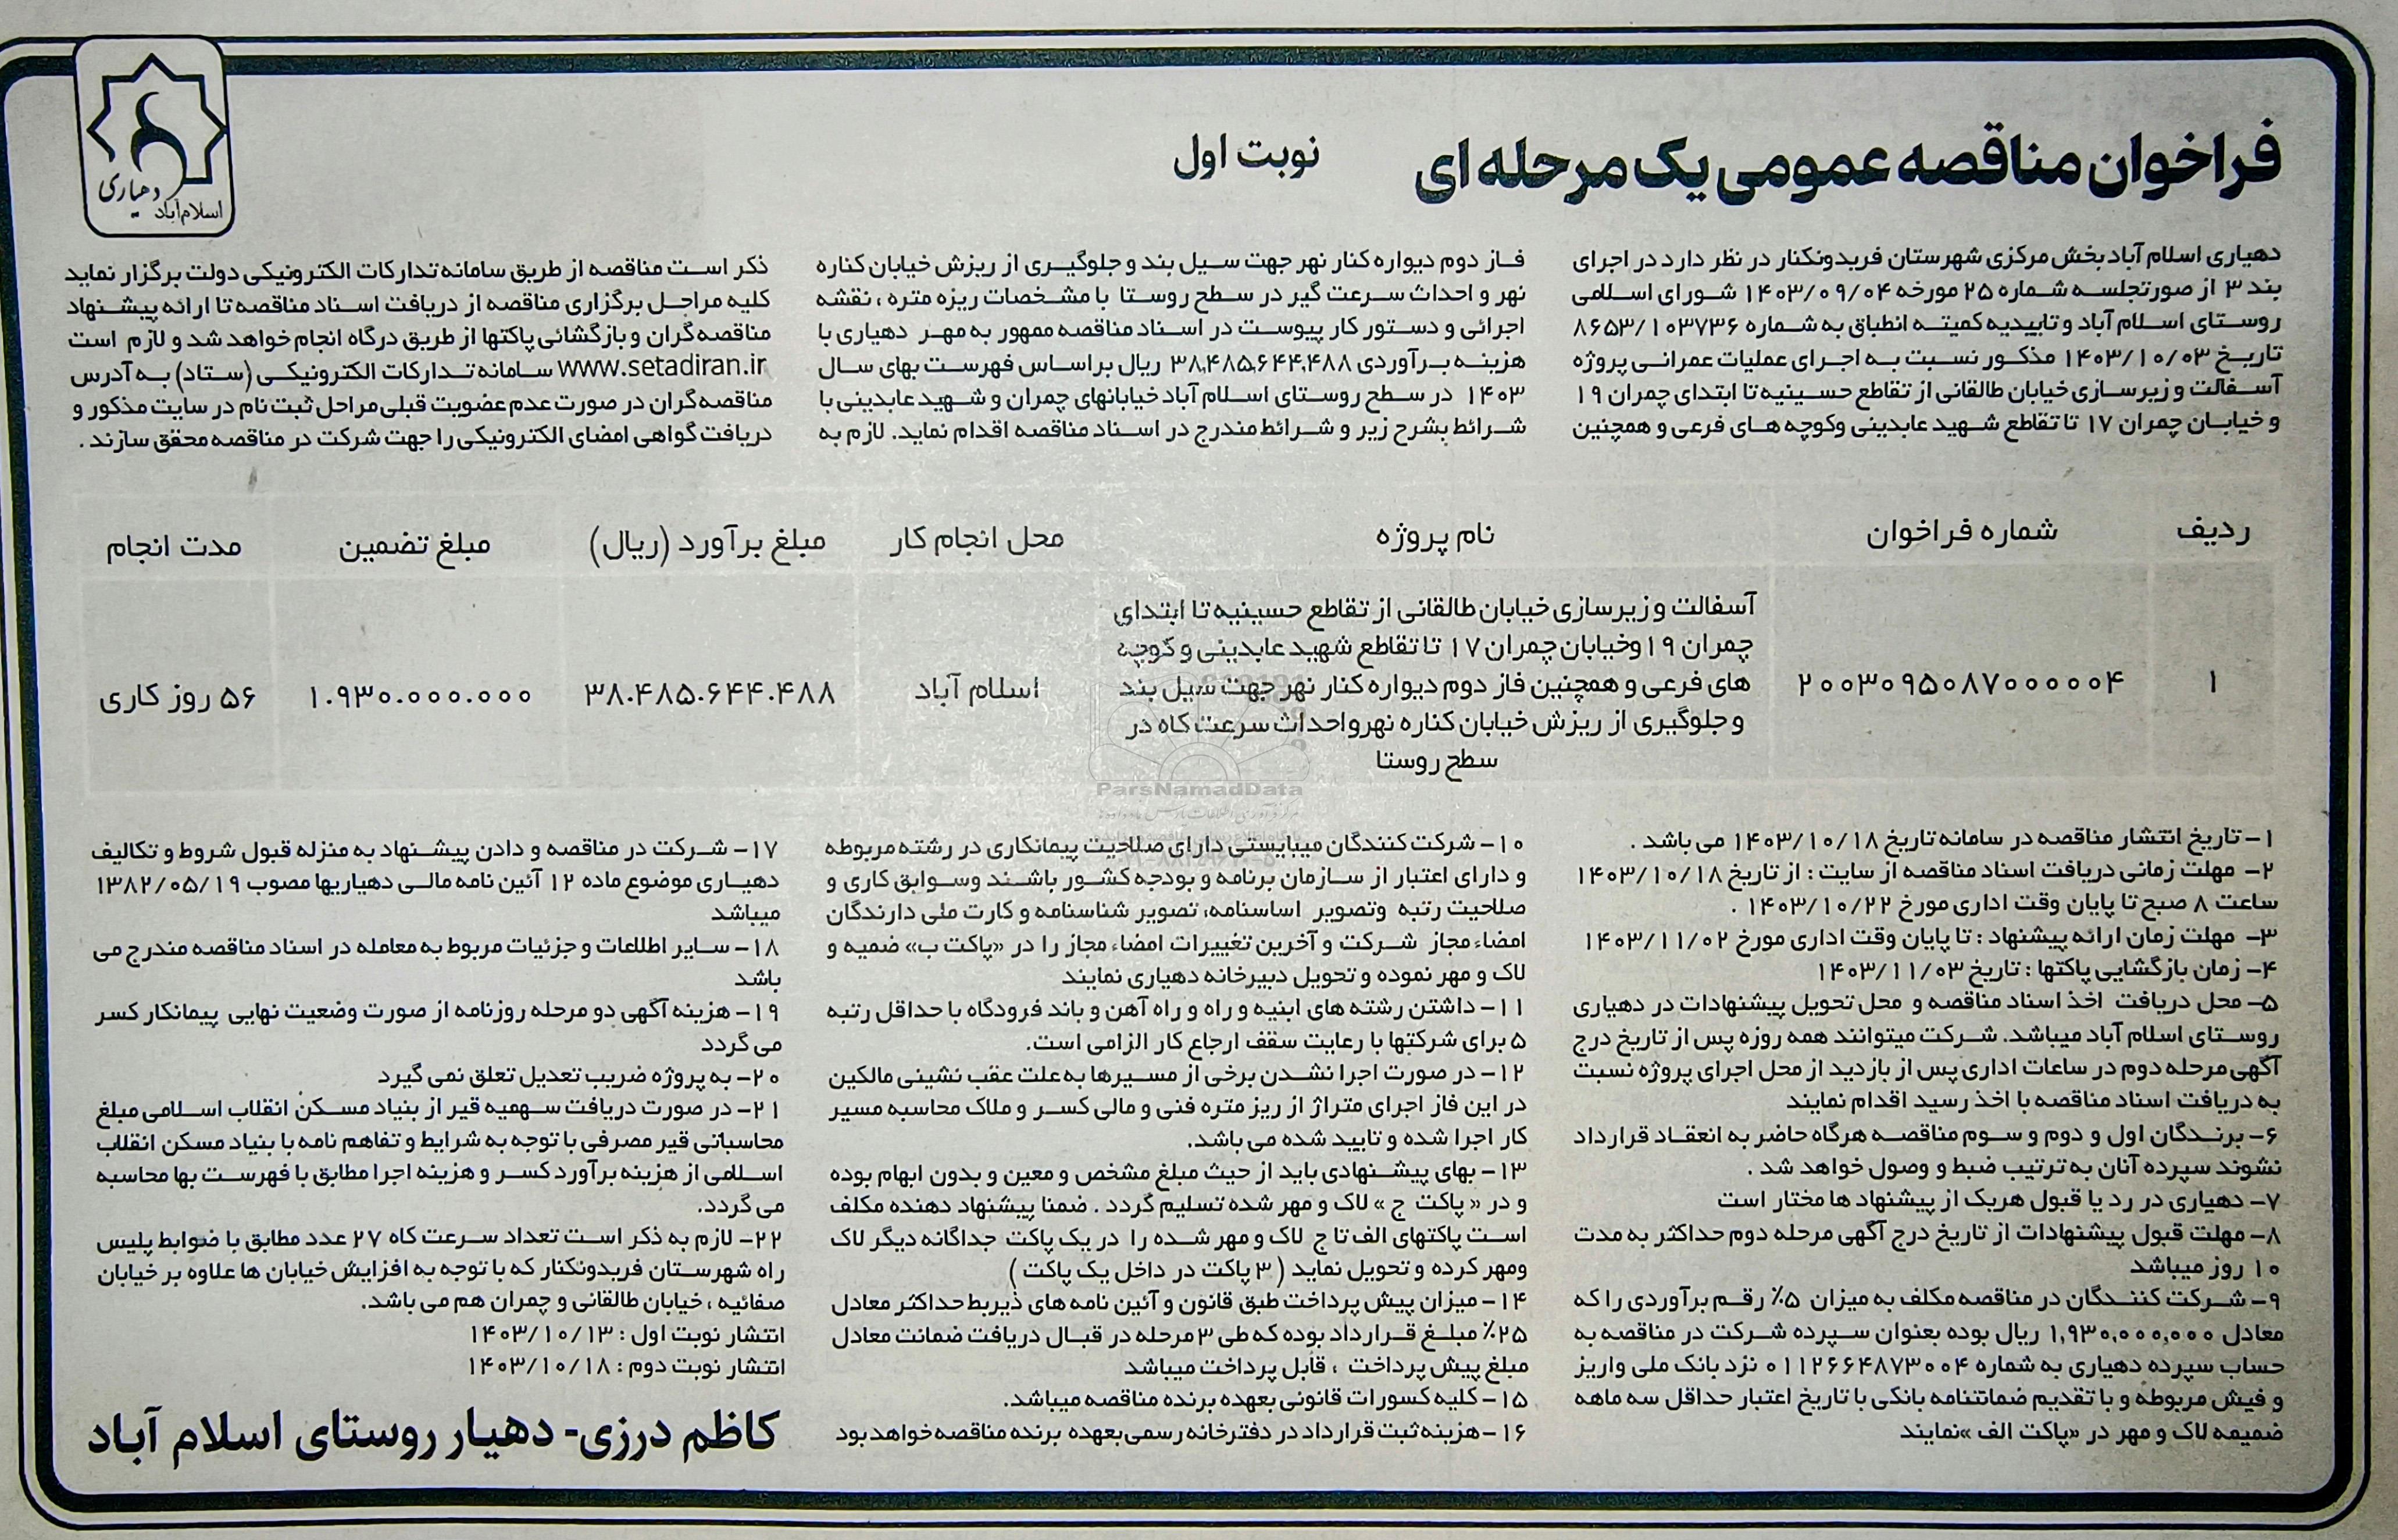 فراخوان مناقصه عمومی یک مرحله ای
نوبت اول
دهیاری
اسلام‌آباد
دهیاری اسلام آباد بخش مرکزی شهرستان فریدونکنار در نظر دارد در اجرای
بند ۳ از صورتجلسه شماره ۲۵ مورخه ۱۴۰۳/۰۹/۰۴ شورای اسلامی
روستای اسلام آباد و تاییدیه کمیته انطباق به شماره ۸۶۵۳/۱۰۳۷۳۶
تاریخ ۱۴۰۳/۱۰/۰۳ مذکور نسبت به اجرای عملیات عمرانی پروژه
آسفالت و زیرسازی خیابان طالقانی از تقاطع حسینیه تا ابتدای چمران ۱۹
و خیابان چمران ۱۷ تا تقاطع شهید عابدینی وکوچه های فرعی و همچنین
فاز دوم دیواره کنار نهر جهت سیل بند و جلوگیری از ریزش خیابان کناره
نهر و احداث سرعت گیر در سطح روستا با مشخصات ریزه متره ، نقشه
اجرائی و دستور کار پیوست در اسناد مناقصه ممهور به مهر دهیاری با
هزینه برآوردی ۳۸,۴۸۵,۶۴۴,۴۸۸ ریال براساس فهرست بهای سال
۱۴۰۳ در سطح روستای اسلام آباد خیابانهای چمران و شهید عابدینی با
شرائط بشرح زیر و شرائط مندرج در اسناد مناقصه اقدام نماید. لازم به
ذکر است مناقصه از طریق سامانه تدارکات الکترونیکی دولت برگزار نماید
کلیه مراحل برگزاری مناقصه از دریافت اسناد مناقصه تا ارائه پیشنهاد
مناقصه گران و بازگشائی پاکتها از طریق درگاه انجام خواهد شد و لازم است
www.setadiran.ir سامانه تدارکات الکترونیکی (ستاد) به آدرس
مناقصه گران در صورت عدم عضویت قبلی مراحل ثبت نام در سایت مذکور و
دریافت گواهی امضای الکترونیکی را جهت شرکت در مناقصه محقق سازند .
ردیف شماره فراخوان نام پروژه محل انجام کار مبلغ برآورد (ریال) مبلغ تضمین مدت انجام
۱ ۲۰۰۳۰۹۵۰۸۷۰۰۰۰۰۴
آسفالت و زیرسازی خیابان طالقانی از تقاطع حسینیه تا ابتدای
چمران ۱۹ وخیابان چمران ۱۷ تا تقاطع شهید عابدینی و کوچه
های فرعی و همچنین فاز دوم دیواره کنار نهر جهت سیل بند
و جلوگیری از ریزش خیابان کناره نهر و احداث سرعت کاه در
سطح روستا
اسلام آباد ۳۸.۴۸۵.۶۴۴.۴۸۸ ۱.۹۳۰.۰۰۰.۰۰۰ ۵۶ روز کاری
ParsNamadData
۱- تاریخ انتشار مناقصه در سامانه تاریخ ۱۴۰۳/۱۰/۱۸ می باشد .
۲- مهلت زمانی دریافت اسناد مناقصه از سایت : از تاریخ ۱۴۰۳/۱۰/۱۸
ساعت ۸ صبح تا پایان وقت اداری مورخ ۱۴۰۳/۱۰/۲۲ .
۳- مهلت زمان ارائه پیشنهاد : تا پایان وقت اداری مورخ ۱۴۰۳/۱۱/۰۲
۴- زمان بازگشایی پاکتها : تاریخ ۱۴۰۳/۱۱/۰۳
۵- محل دریافت اخذ اسناد مناقصه و محل تحویل پیشنهادات در دهیاری
روستای اسلام آباد میباشد. شرکت میتوانند همه روزه پس از تاریخ درج
آگهی مرحله دوم در ساعات اداری پس از بازدید از محل اجرای پروژه نسبت
به دریافت اسناد مناقصه با اخذ رسید اقدام نمایند
۶- برندگان اول و دوم و سوم مناقصه هرگاه حاضر به انعقاد قرارداد
نشوند سپرده آنان به ترتیب ضبط و وصول خواهد شد .
۷- دهیاری در رد یا قبول هریک از پیشنهاد ها مختار است
۸- مهلت قبول پیشنهادات از تاریخ درج آگهی مرحله دوم حداکثر به مدت
۱۰ روز میباشد
۹- شرکت کنندگان در مناقصه مکلف به میزان ۵٪ رقم برآوردی را که
معادل ۱,۹۳۰,۰۰۰,۰۰۰ ریال بوده بعنوان سپرده شرکت در مناقصه به
حساب سپرده دهیاری به شماره ۰۱۱۲۶۶۴۸۷۳۰۰۴ نزد بانک ملی واریز
و فیش مربوطه و با تقدیم ضمانتنامه بانکی با تاریخ اعتبار حداقل سه ماهه
ضمیمه لاک و مهر در «پاکت الف »نمایند
۱۰- شرکت کنندگان میبایستی دارای صلاحیت پیمانکاری در رشته مربوطه
و دارای اعتبار از سازمان برنامه و بودجه کشور باشند وسوابق کاری و
صلاحیت رتبه وتصویر اساسنامه، تصویر شناسنامه و کارت ملی دارندگان
امضاء مجاز شرکت و آخرین تغییرات امضاء مجاز را در «پاکت ب» ضمیه و
لاک و مهر نموده و تحویل دبیرخانه دهیاری نمایند
۱۱- داشتن رشته های ابنیه و راه و راه آهن و باند فرودگاه با حداقل رتبه
۵ برای شرکتها با رعایت سقف ارجاع کار الزامی است.
۱۲- در صورت اجرا نشدن برخی از مسیرها به علت عقب نشینی مالکین
در این فاز اجرای متراژ از ریز متره فنی و مالی کسر و ملاک محاسبه مسیر
کار اجرا شده و تایید شده می باشد.
۱۳- بهای پیشنهادی باید از حیث مبلغ مشخص و معین و بدون ابهام بوده
و در « پاکت ج » لاک و مهر شده تسلیم گردد . ضمنا پیشنهاد دهنده مکلف
است پاکتهای الف تا ج لاک و مهر شده را در یک پاکت جداگانه دیگر لاک
ومهر کرده و تحویل نماید ( ۳ پاکت در داخل یک پاکت )
۱۴- میزان پیش پرداخت طبق قانون و آئین نامه های ذیربط حداکثر معادل
۲۵٪ مبلغ قرارداد بوده که طی ۳ مرحله در قبال دریافت ضمانت معادل
مبلغ پیش پرداخت ، قابل پرداخت میباشد
۱۵- کلیه کسورات قانونی بعهده برنده مناقصه میباشد.
۱۶- هزینه ثبت قرارداد در دفترخانه رسمی بعهده برنده مناقصه خواهد بود
۱۷- شرکت در مناقصه و دادن پیشنهاد به منزله قبول شروط و تکالیف
دهیاری موضوع ماده ۱۲ آئین نامه مالی دهیاریها مصوب ۱۳۸۲/۰۵/۱۹
میباشد
۱۸- سایر اطلاعات و جزئیات مربوط به معامله در اسناد مناقصه مندرج می
باشد
۱۹- هزینه آگهی دو مرحله روزنامه از صورت وضعیت نهایی پیمانکار کسر
می گردد
۲۰- به پروژه ضریب تعدیل تعلق نمی گیرد
۲۱- در صورت دریافت سهمیه قیر از بنیاد مسکن انقلاب اسلامی مبلغ
محاسباتی قیر مصرفی با توجه به شرایط و تفاهم نامه با بنیاد مسکن انقلاب
اسلامی از هزینه برآورد کسر و هزینه اجرا مطابق با فهرست بها محاسبه
می گردد.
۲۲- لازم به ذکر است تعداد سرعت کاه ۲۷ عدد مطابق با ضوابط پلیس
راه شهرستان فریدونکنار که با توجه به افزایش خیابان ها علاوه بر خیابان
صفائیه ، خیابان طالقانی و چمران هم می باشد.
انتشار نوبت اول : ۱۴۰۳/۱۰/۱۳
انتشار نوبت دوم : ۱۴۰۳/۱۰/۱۸
کاظم درزی- دهیار روستای اسلام آباد